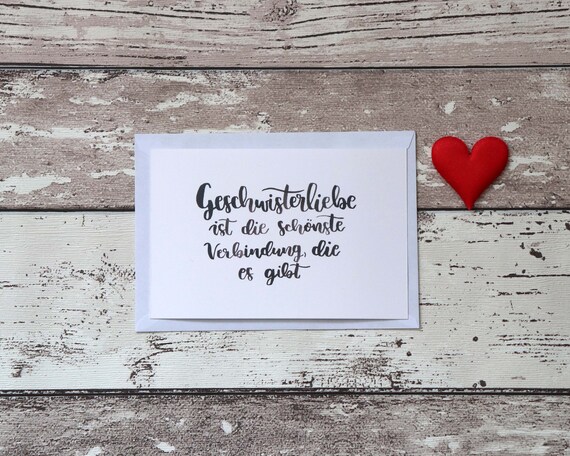 Geschwisterliebe
ist die schönste
Verbindung, die
es gibt